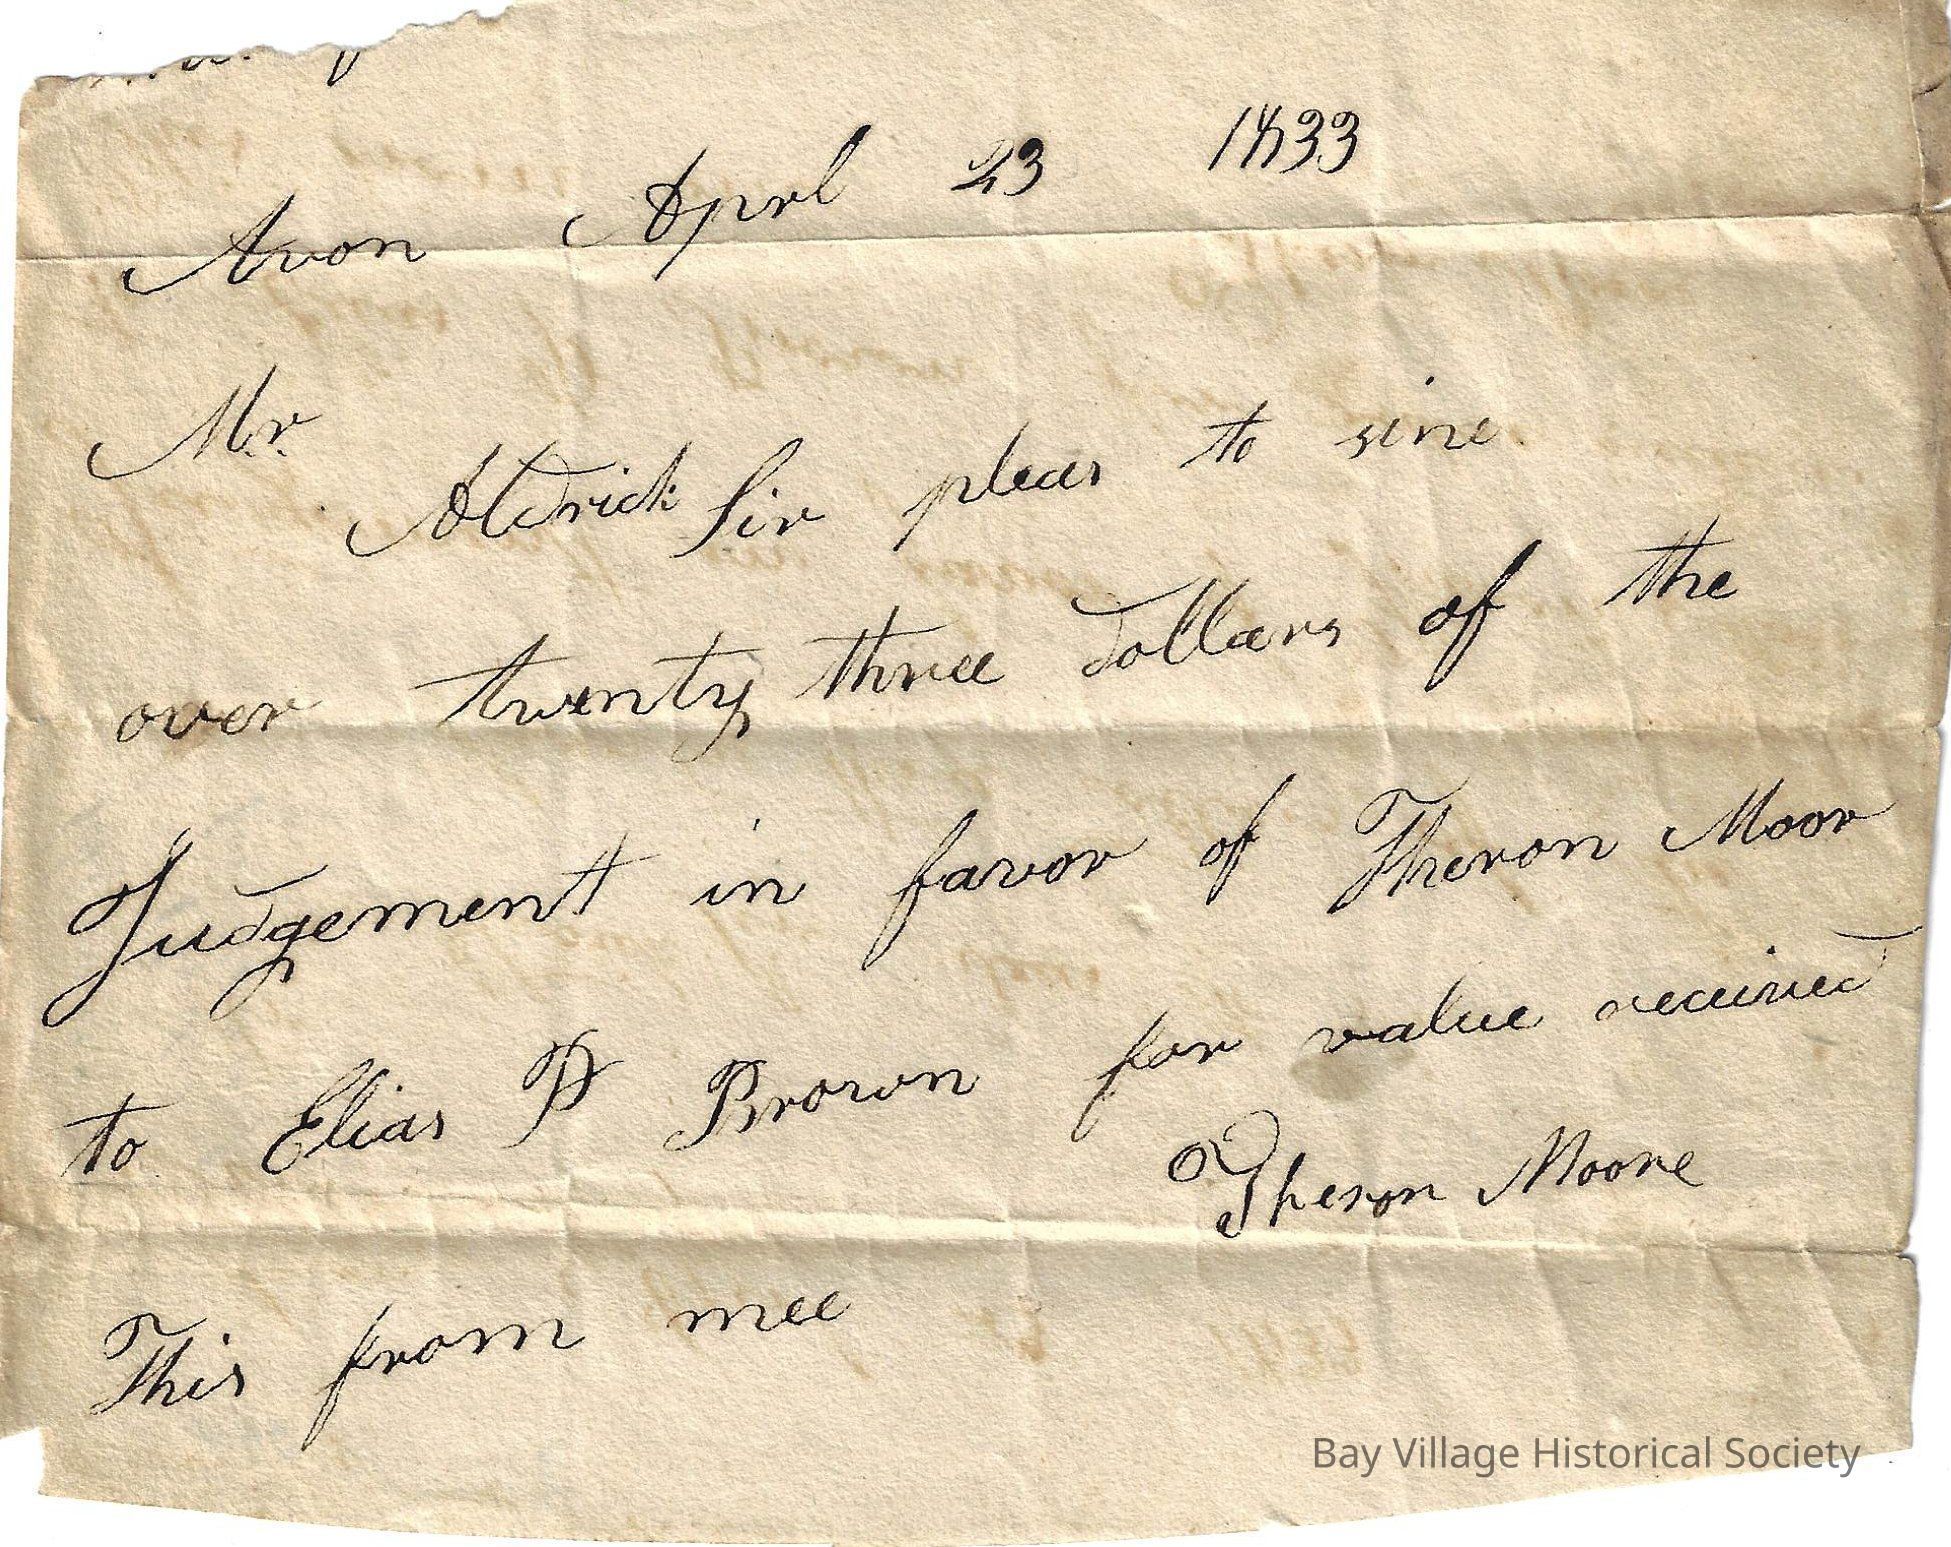 Avon Aprl 23 1833
Mr.
Aldrich Sir pleas to sine
over twenty three dollars of the
Judgement in favor of Theron Moor
to Elias P Brown for value received
Theron Moore
This from mee
Bay Village Historical Society